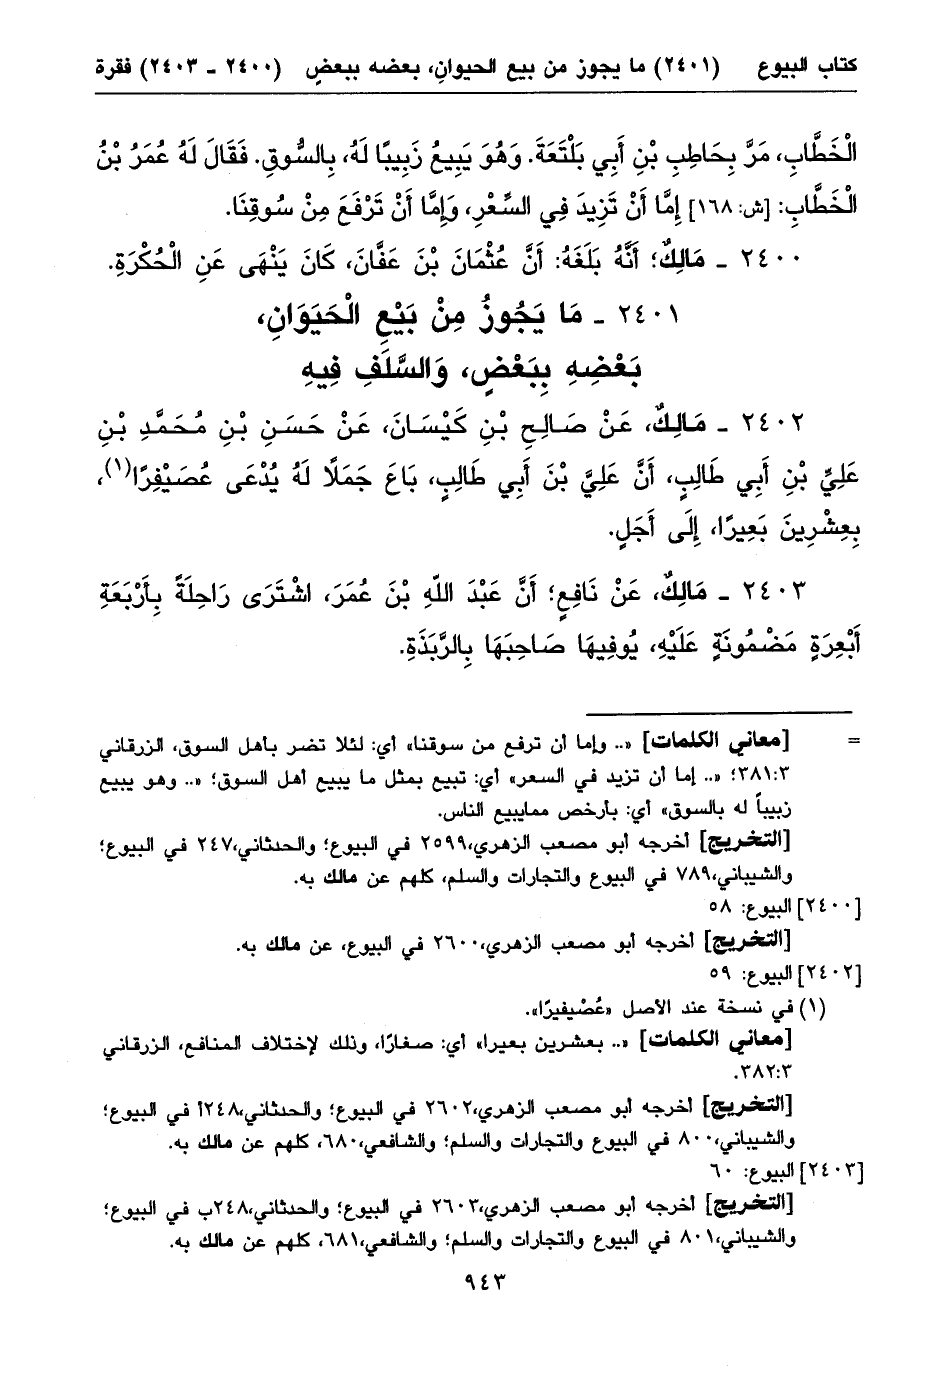 كتاب البيوع (٢٤٠١) ما يجوز من بيع الحيوانِ، بعضه ببعضٍ (٢٤٠٠ ـ ٢٤٠٣) فقرة
الْخَطَّابِ، مَرَّ بِحَاطِبِ بْنِ أَبِي بَلْتَعَةَ. وَهُوَ يَبِيعُ زَبِيبًا لَهُ، بِالسُّوقِ. فَقَالَ لَهُ عُمَرُ بْنُ
الْخَطَّابِ: [ش: ١٦٨] إِمَّا أَنْ تَزِيدَ فِي السِّعْرِ، وَإِمَّا أَنْ تَرْفَعَ مِنْ سُوقِنَا.
٢٤٠٠ ـ مَالِكٌ؛ أَنَّهُ بَلَغَهُ: أَنَّ عُثْمَانَ بْنَ عَفَّانَ، كَانَ يَنْهَى عَنِ الْحُكْرَةِ.
٢٤٠١ ـ مَا يَجُوزُ مِنْ بَيْعِ الْحَيَوَانِ،
بَعْضِهِ بِبَعْضٍ، وَالسَّلَفِ فِيهِ
٢٤٠٢ ـ مَالِكٌ، عَنْ صَالِحِ بْنِ كَيْسَانَ، عَنْ حَسَنِ بْنِ مُحَمَّدِ بْنِ
عَلِيِّ بْنِ أَبِي طَالِبٍ، أَنَّ عَلِيَّ بْنَ أَبِي طَالِبٍ، بَاعَ جَمَلًا لَهُ يُدْعَى عُصَيْفِرًا(١)،
بِعِشْرِينَ بَعِيرًا، إِلَى أَجَلٍ.
٢٤٠٣ ـ مَالِكٌ، عَنْ نَافِعٍ؛ أَنَّ عَبْدَ اللّهِ بْنَ عُمَرَ، اشْتَرَى رَاحِلَةً بِأَرْبَعَةِ
أَبْعِرَةٍ مَضْمُونَةٍ عَلَيْهِ، يُوفِيهَا صَاحِبَهَا بِالرَّبَذَةِ.
= [معاني الكلمات] «.. وإما أن ترفع من سوقنا» أي: لئلا تضر بأهل السوق، الزرقاني
٣٨١:٣؛ «.. إما أن تزيد في السعر» أي: تبيع بمثل ما يبيع أهل السوق؛ «.. وهو يبيع
زبيباً له بالسوق» أي: بأرخص ممايبيع الناس.
[التخريج] أخرجه أبو مصعب الزهري،٢٥٩٩ في البيوع؛ والحدثاني،٢٤٧ في البيوع؛
والشيباني،٧٨٩ في البيوع والتجارات والسلم، كلهم عن مالك به.
[٢٤٠٠] البيوع: ٥٨
[التخريج] أخرجه أبو مصعب الزهري،٢٦٠٠ في البيوع، عن مالك به.
[٢٤٠٢] البيوع: ٥٩
(١) في نسخة عند الأصل «عُصْيفيرًا».
[معاني الكلمات] «.. بعشرين بعيرا» أي: صغارًا، وذلك لإختلاف المنافع، الزرقاني
٣٨٢:٣.
[التخريج] أخرجه أبو مصعب الزهري،٢٦٠٢ في البيوع؛ والحدثاني،٢٤٨أ في البيوع؛
والشيباني،٨٠٠ في البيوع والتجارات والسلم؛ والشافعي،٦٨٠، كلهم عن مالك به.
[٢٤٠٣] البيوع: ٦٠
[التخريج] أخرجه أبو مصعب الزهري،٢٦٠٣ في البيوع؛ والحدثاني،٢٤٨ب في البيوع؛
والشيباني،٨٠١ في البيوع والتجارات والسلم؛ والشافعي،٦٨١، كلهم عن مالك به.
٩٤٣